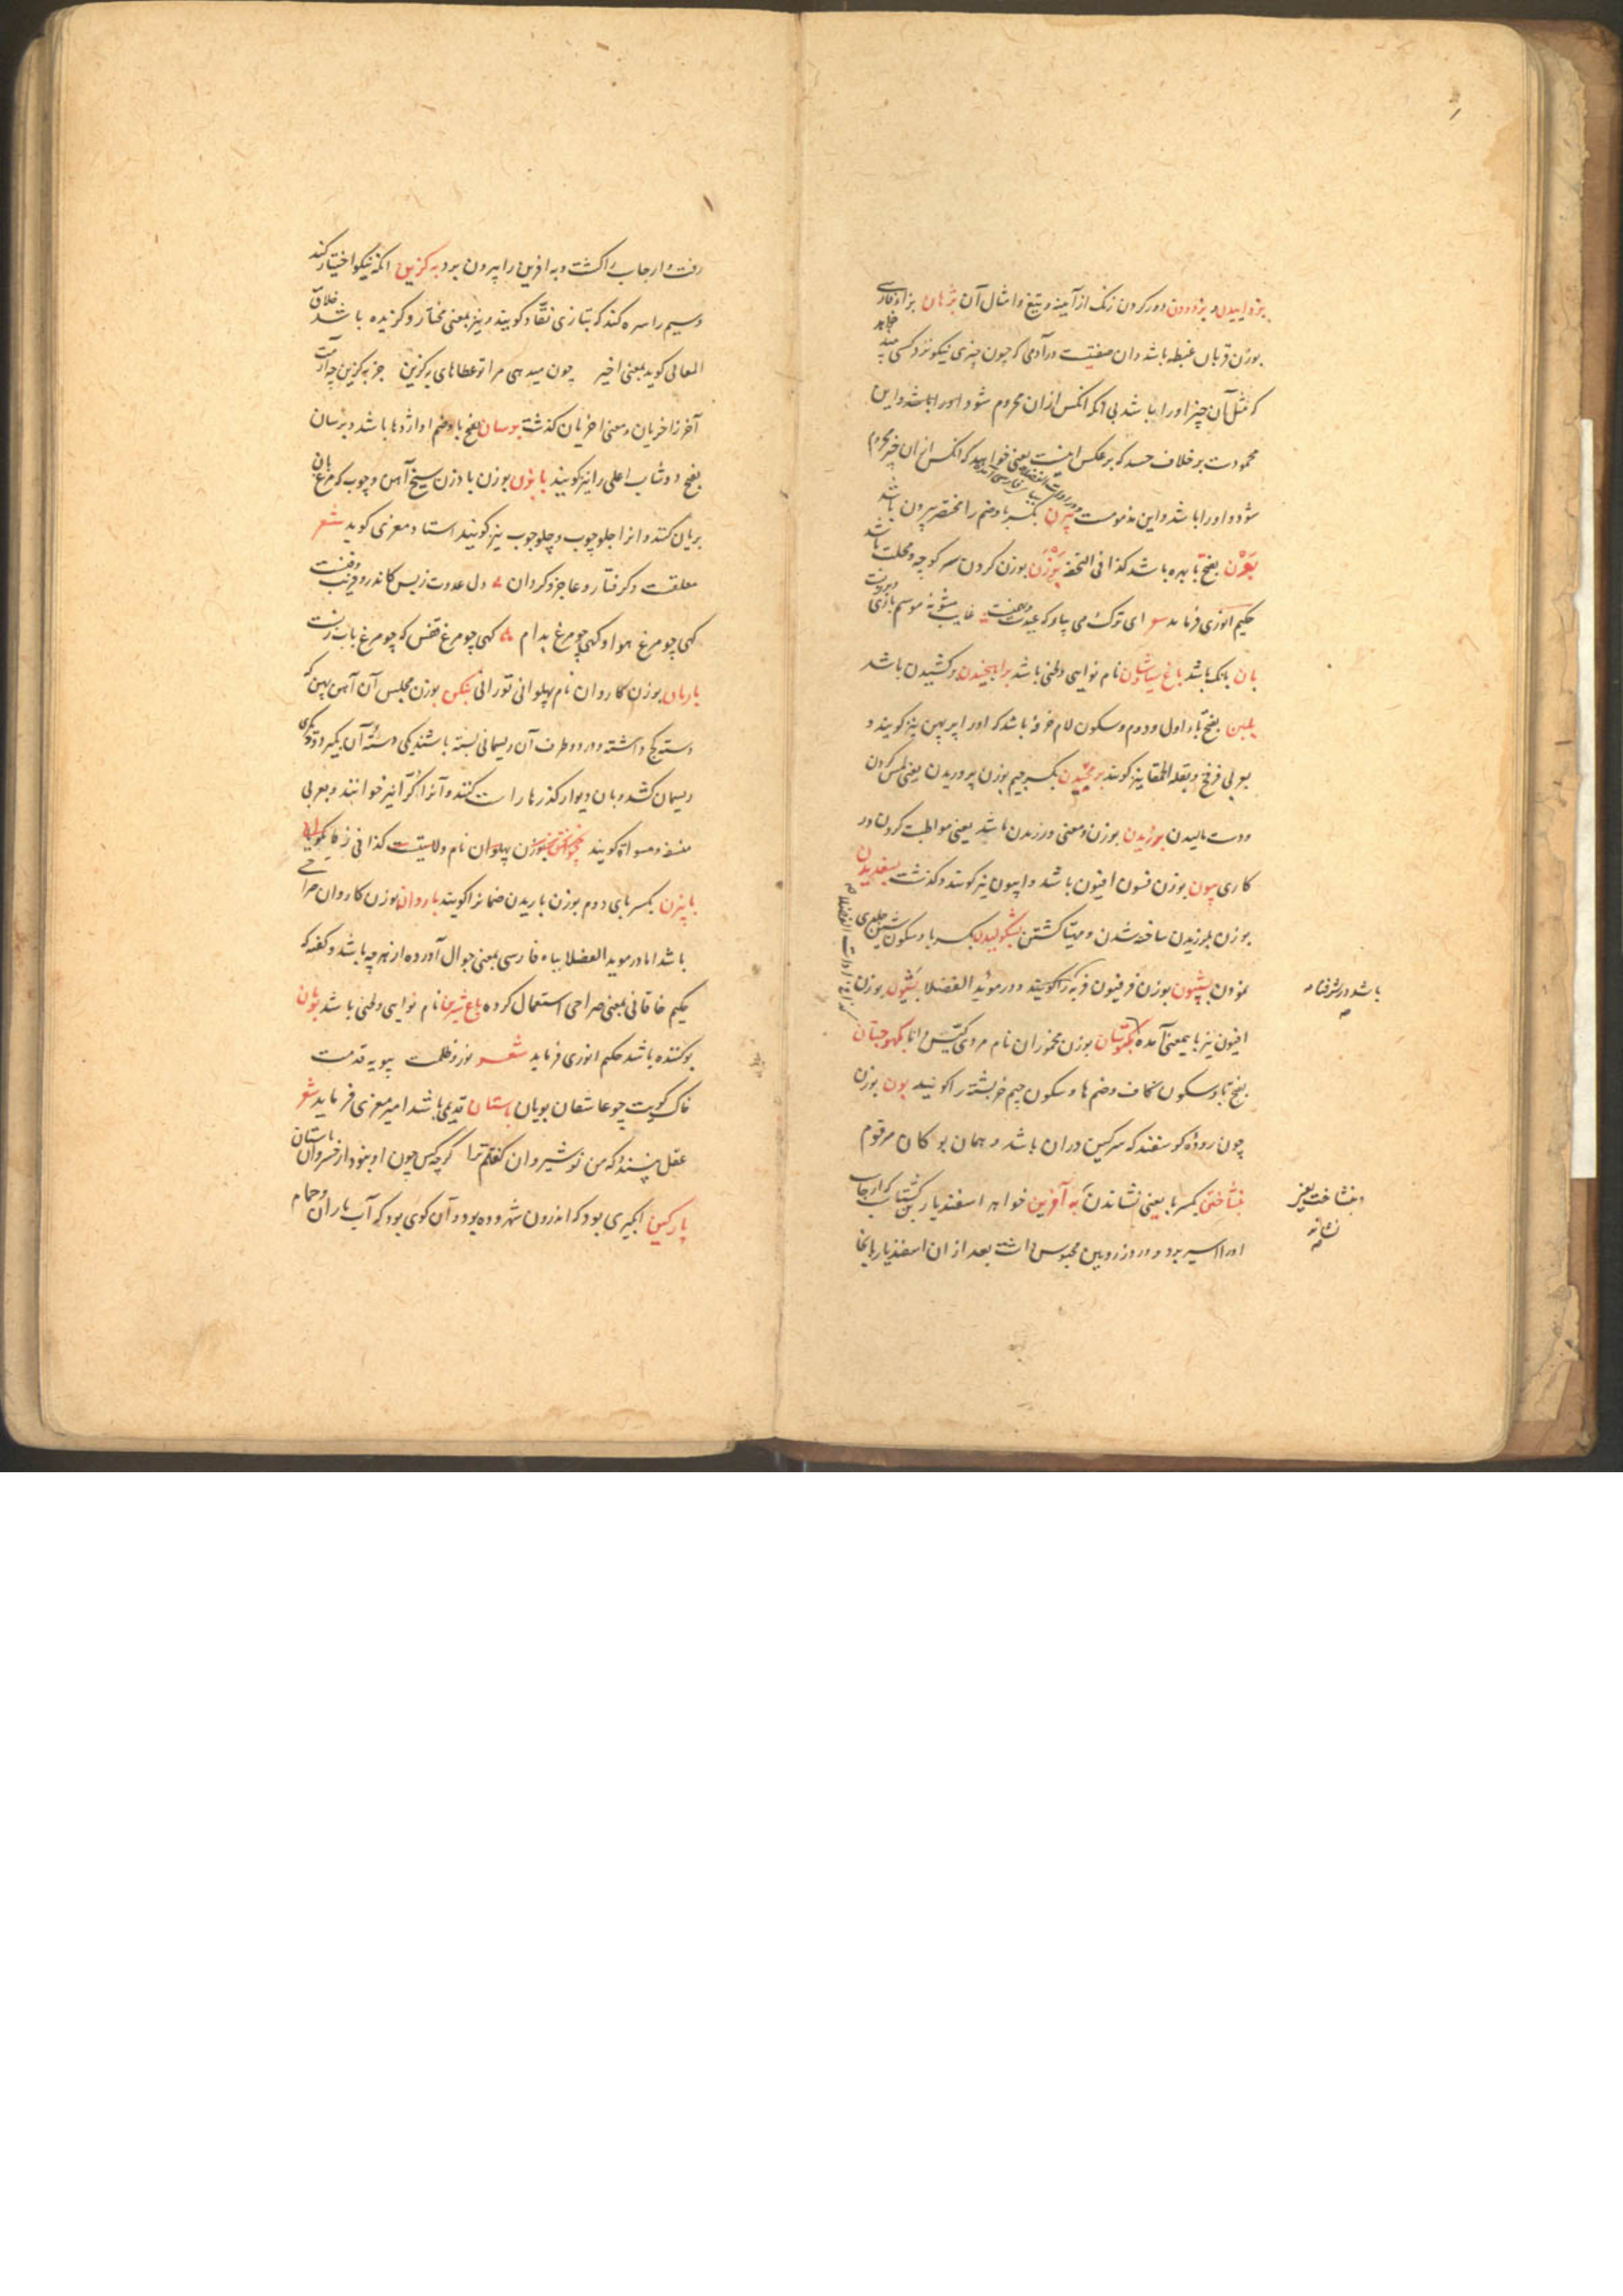 بزداییدن و بزدودن دور کردن زنک از آیینه و تیغ و امثال آن بژهان بزاء فارسی
بوزن قربان غبطه باشد و ان صفتیست در آدمی که چون چیزی نیکو نزد کسی بیند خواهد
که مثل آن چیز اورا باشد بی انکه انکس ازان محروم شود و اورا باشد و این
محمودست بر خلاف حسد که بر عکس اینست یعنی خواهد که انکس از ان چیز محروم
شود و اورا باشد و این مذمومست بیرن بکسر با و ضم را مختصر بیرون باشد
بفتح با بهره باشد کذا فی التحفه برزن بوزن کردن سر کوچه و محلت باشد
حکیم انوری فرماید شعر ای ترک می بیار که عیدست و بهمنست غایب مشو نه موسم بازی و برزنست
بان بانک باشد باغ سیاوشان نام نوایی و لحنی باشد بر اهیختن برکشیدن باشد
بلبن بفتح باء اول و دوم و سکون لام خرفه باشد که اورا پرپهن نیز کویند و
بعربی فرفخ و بقلة الحمقا نیز کویند برمجیدن بکسر جیم بوزن پروریدن یعنی لمس کردن
و دست مالیدن بورزیدن بوزن و معنی ورزیدن باشد یعنی مواظبت کردن در
کاری بیون بوزن فسون افیون باشد و اپیون نیز کویند و کذشت بسغدیدن
بوزن بلرزیدن ساخته شدن و مهیا کشتن بشکولیدن بکسر با و سکون شین جلدی
نمودن بشیون بوزن فرفیون فربه را کویند و در مؤید الفضلا بشیون بوزن
افیون نیز باینمعنی آمده بوزن مخموران نام مردی
بفتح با و سکون کاف و ضم ها و سکون جیم خربشته را کویند بون بوزن
چون روده کوسفند که سرکین دران باشد و همان بوکان مرقوم
بنشاختن بکسر با یعنی نشاندن به آفرین خواهر اسفندیار بن کشتاسب که ارجاسب
اورا اسیر برد و در دز رویین محبوس داشت بعد از ان اسفندیار بانجا
باشد در شرفنامه
و بنشاخت یعنی
نشاند
رفت و ارجاسب را کشت و به افرین را بیرون برد به کزین انکه نیکو اختیار کند
و سیم را سره کند که بتازی نقاد کویند و نیز بمعنی مختار و کزیده باشد خلاق
المعانی کوید بمعنی اخیر چون میدهی مرا تو عطاهای به کزین جز به کزین چه آرمت
آخر ز اخریان و معنی اخریان کذشت بوسان بفتح با و ضم او اژدها باشد و برسان
بفتح دوشاب اعلی را نیز کویند بابزن بوزن بادزن سیخ آهن و چوب که مرغ بان
بریان کنند و انرا جلوچوب و چلوچوب نیز کویند استاد معزی کوید شعر
معلقست و کرفتار و عاجز و کردان دل عدوت ز بس کاندرو فریب و فنست
کهی چو مرغ هوا و کهی چو مرغ بدام کهی چو مرغ قفس که چو مرغ بابزنست
بارمان بوزن کاروان نام پهلوانی تورانی بنکن بوزن مجلس آن آهن پهن که
دسته کج داشته و در دو طرف آن ریسمانی بسته باشند یکی دسته آن بکیرد و دیکری
ریسمان کشد و بان دیوار کذرها راست کنند و آنرا کرا نیز خوانند و بعربی
منسفه و مسواة کویند بوزن پهلوان نام ولایتیست کذا فی
بابیزن بکسر بای دوم بوزن باریدن ضمان را کویند باروان بوزن کاروان صراحی
باشد اما در موید الفضلا بباء فارسی بمعنی جوال آورده از هر چه باشد و کفته که
حکیم خاقانی بمعنی صراحی استعمال کرده باغ شیرین نام نوایی و لحنی باشد بویان
بوکننده باشد حکیم انوری فرماید شعر نور و ظلمت بپویه قدمت
خاک کویت چو عاشقان بویان باستان قدیمی باشد امیر معزی فرماید شعر
عقل نپسندد که من نوشیروان کفتم ترا کرچه کس چون او نبود از خسروان باستان
بارکین ابکیری بود که اندرون شهر و ده بود و آن کوی بود که آب باران و حمام